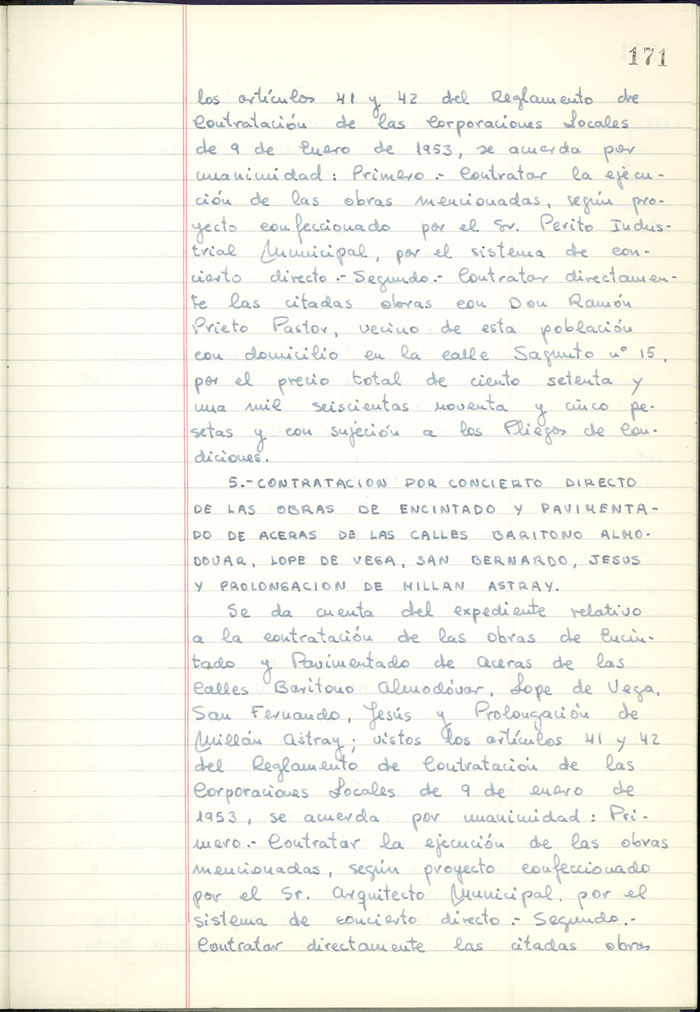 171
los artículos 41 y 42 del Reglamento de
Contratación de las Corporaciones Locales
de 9 de Enero de 1953, se acuerda por
unanimidad: Primero.- Contratar la ejecu-
ción de las obras mencionadas, según pro-
yecto confeccionado por el Sr. Perito Indus-
trial Municipal, por el sistema de con-
cierto directo.- Segundo.- Contratar directamen-
te las citadas obras con Don Ramón
Prieto Pastor, vecino de esta población
con domicilio en la calle Sagunto nº 15,
por el precio total de ciento setenta y
una mil seiscientas noventa y cinco pe-
setas y con sujeción a los Pliegos de Con-
diciones.
5.- CONTRATACION POR CONCIERTO DIRECTO
DE LAS OBRAS DE ENCINTADO Y PAVIMENTA-
DO DE ACERAS DE LAS CALLES BARITONO ALMO-
DOVAR, LOPE DE VEGA, SAN BERNARDO, JESUS
Y PROLONGACION DE MILLAN ASTRAY.
Se da cuenta del expediente relativo
a la contratación de las obras de Encin-
tado y Pavimentado de Aceras de las
Calles Barítono Almodóvar, Lope de Vega,
San Fernando, Jesús y Prolongación de
Millán Astray; vistos los artículos 41 y 42
del Reglamento de Contratación de las
Corporaciones Locales de 9 de enero de
1953, se acuerda por unanimidad: Pri-
mero.- Contratar la ejecución de las obras
mencionadas, según proyecto confeccionado
por el Sr. Arquitecto Municipal, por el
sistema de concierto directo.- Segundo.-
Contratar directamente las citadas obras